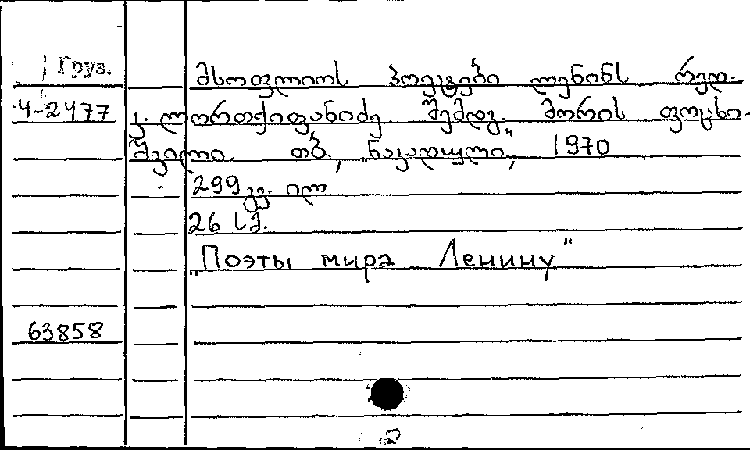 Груз.
4-2477
63858
მსოფლიოს პოეტები ლენინს რედ.
კ. ლორთქიფანიძე. შემდგ. მორის ფოცხი-
შვილი. თბ., „ნაკადული“, 1970
299 გვ. ილ
26 სმ.
„Поэты мира Ленину“
2